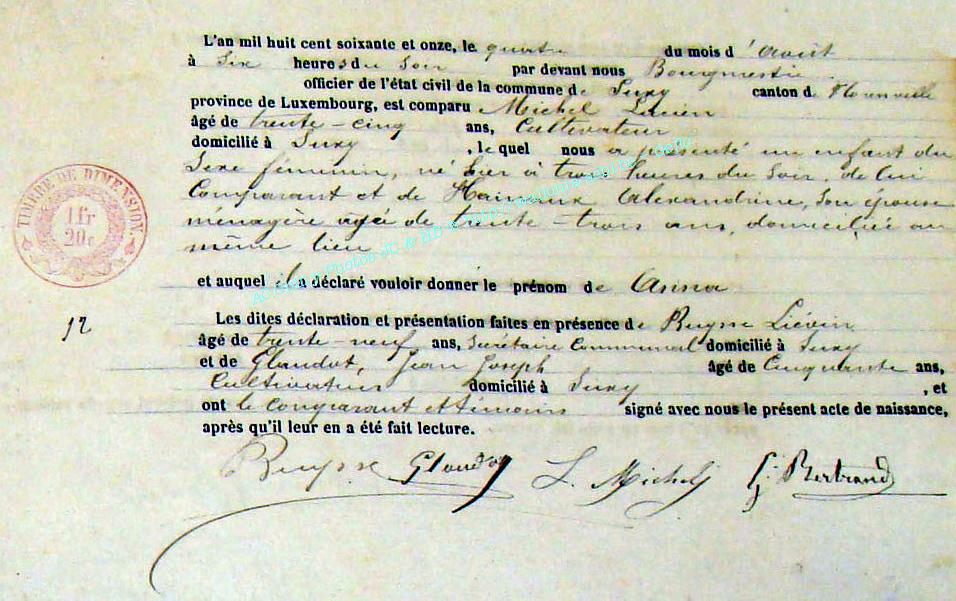 L'an mil huit cent soixante et onze, le quatre du mois d'Août
à Six heures du Soir par devant nous Bourgmestre
officier de l'état civil de la commune de Suxy canton de Florenville
province de Luxembourg, est comparu Michel Lucien
âgé de trente-cinq ans, Cultivateur
domicilié à Suxy , lequel nous a présenté un enfant du
Sexe féminin, né hier à trois heures du Soir, de lui
Comparant et de Hainaux Alexandrine, Son épouse
ménagère agée de trente-trois ans, domiciliée au
même lieu
et auquel il a déclaré vouloir donner le prénom de Anna
TIMBRE DE DIMENSION
1 fr
20c
12
Les dites déclaration et présentation faites en présence de Buysse Liévin
âgé de trente-neuf ans, Secrétaire Communal domicilié à Suxy
et de Glaudot, Jean Joseph âgé de Cinquante ans,
Cultivateur domicilié à Suxy , et
ont le Comparant et témoins signé avec nous le présent acte de naissance,
après qu'il leur en a été fait lecture.
Buysse Glaudot L. Michel J. Bertrand